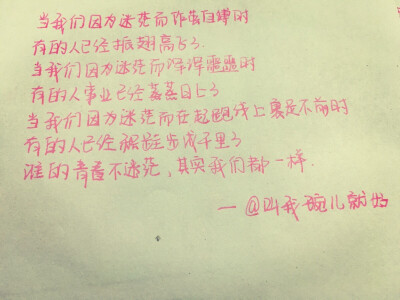 当我们因为迷茫而作茧自缚时
有的人已经振翅高飞了.
当我们因为迷茫而浑浑噩噩时
有的人事业已经蒸蒸日上了
当我们因为迷茫而在起跑线上裹足不前时
有的人已经跬步成千里了
谁的青春不迷茫，其实我们都一样.
— @叫我琬儿就好